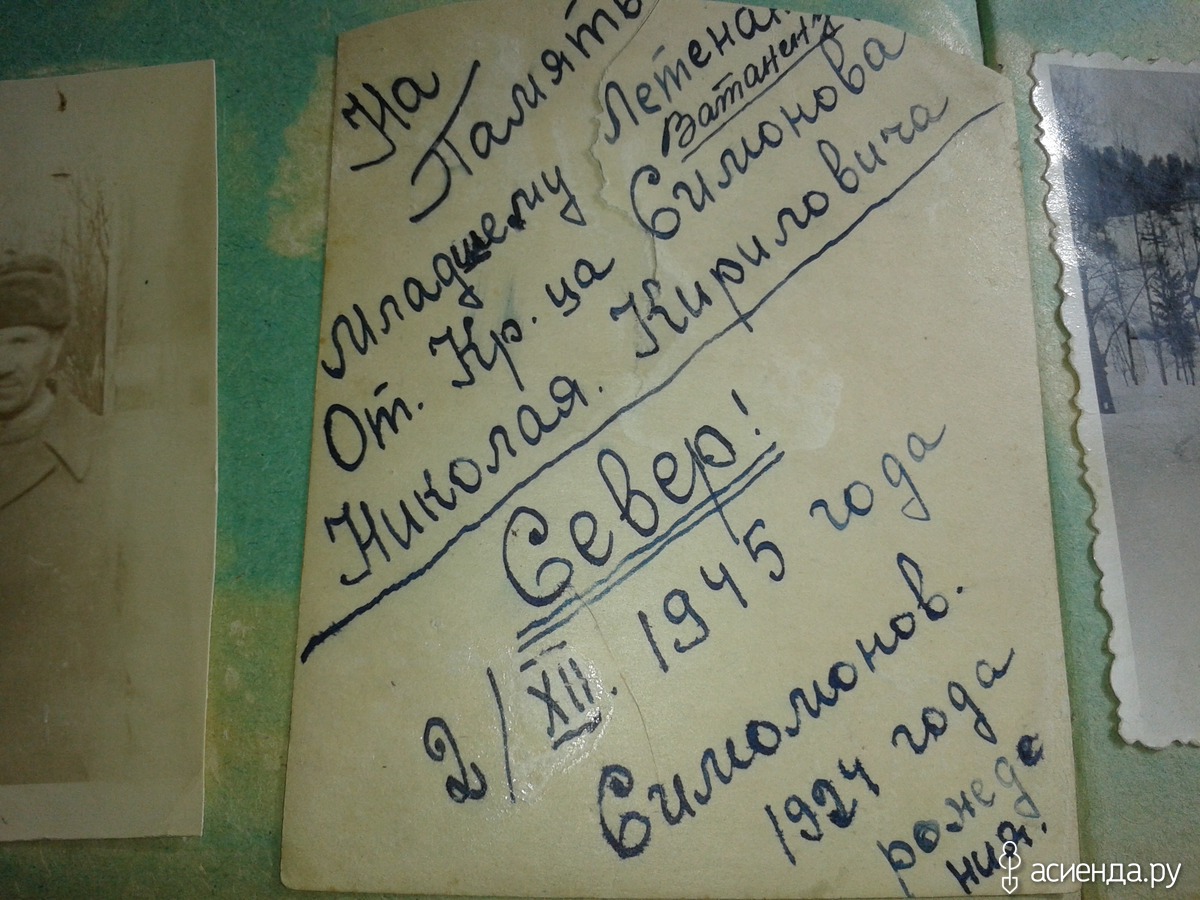 На
Память
младшему Летенан
Ватанену
От. Кр. ца Симонова
Николая. Кириловича
Север!
2/XII. 1945 года
Симомонов.
1924 года
рожеде
ния.
асиенда.ру